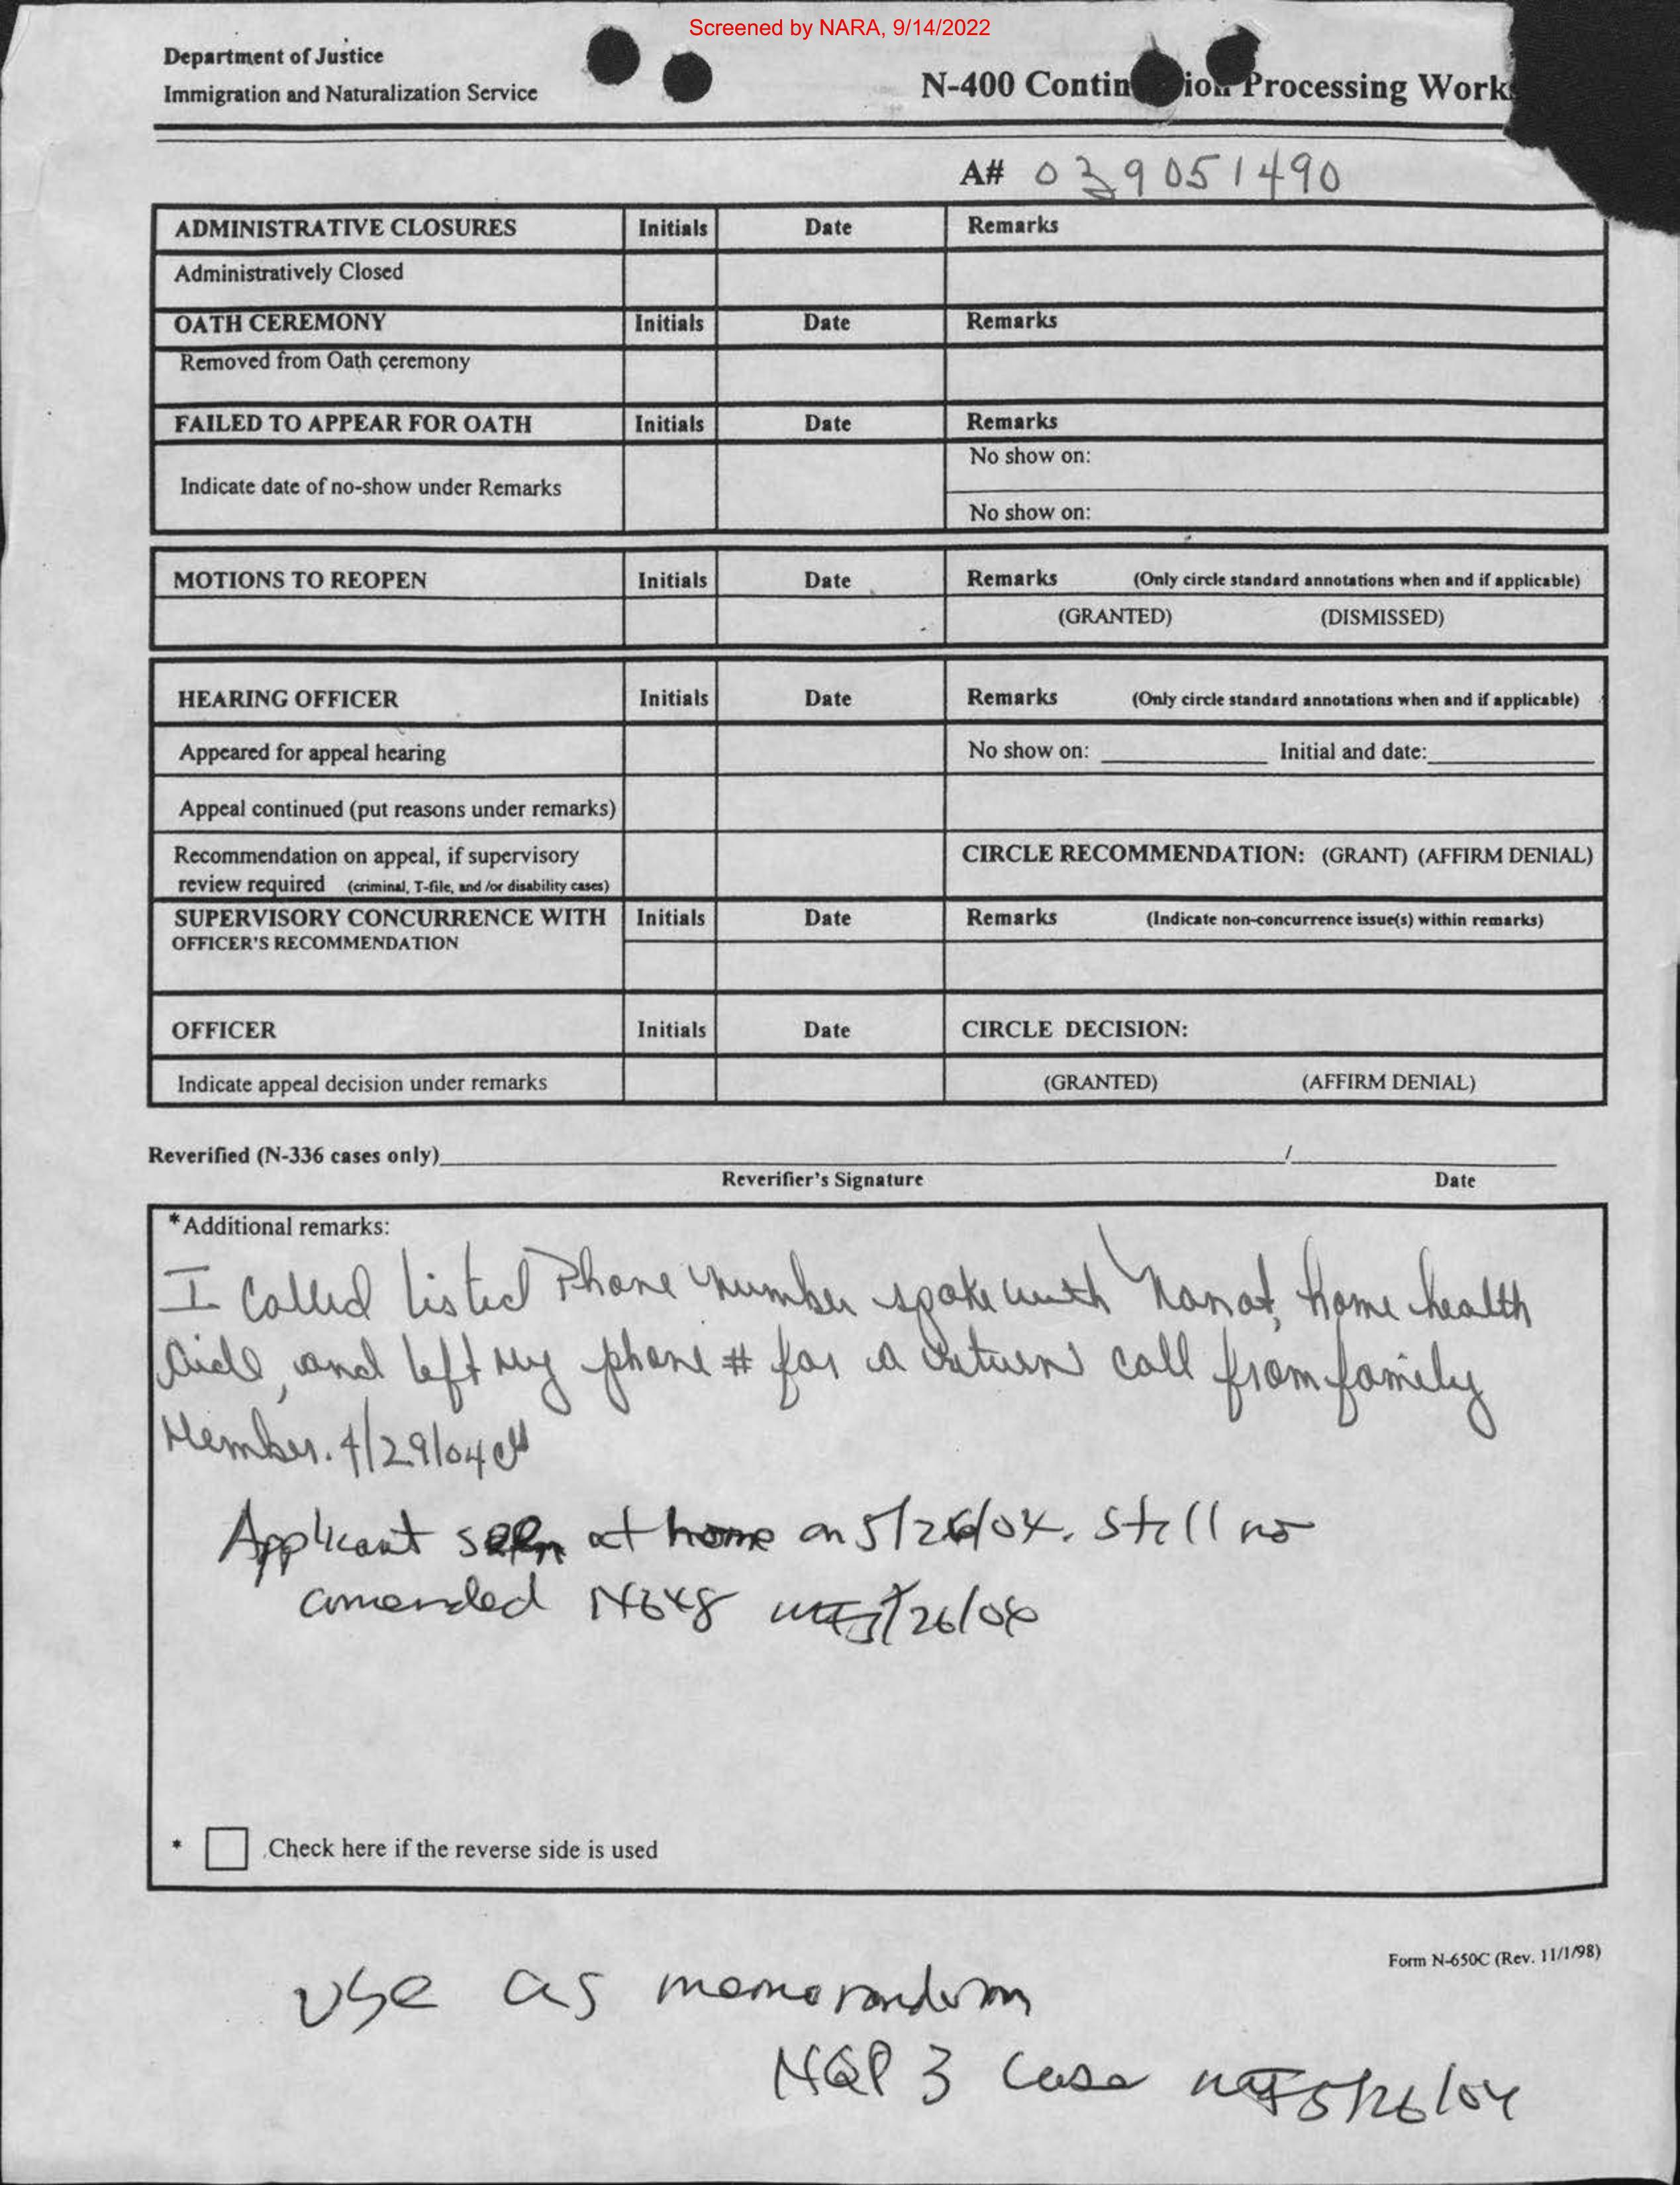 Screened by NARA, 9/14/2022
Department of Justice
Immigration and Naturalization Service
N-400 Contin ion Processing Work
A# 039051490
ADMINISTRATIVE CLOSURES Initials Date Remarks
Administratively Closed
OATH CEREMONY Initials Date Remarks
Removed from Oath ceremony
FAILED TO APPEAR FOR OATH Initials Date Remarks
No show on:
Indicate date of no-show under Remarks
No show on:
MOTIONS TO REOPEN Initials Date Remarks (Only circle standard annotations when and if applicable)
(GRANTED) (DISMISSED)
HEARING OFFICER Initials Date Remarks (Only circle standard annotations when and if applicable)
Appeared for appeal hearing No show on: Initial and date:
Appeal continued (put reasons under remarks)
Recommendation on appeal, if supervisory CIRCLE RECOMMENDATION: (GRANT) (AFFIRM DENIAL)
review required (criminal, T-file, and /or disability cases)
SUPERVISORY CONCURRENCE WITH Initials Date Remarks (Indicate non-concurrence issue(s) within remarks)
OFFICER'S RECOMMENDATION
OFFICER Initials Date CIRCLE DECISION:
Indicate appeal decision under remarks (GRANTED) (AFFIRM DENIAL)
Reverified (N-336 cases only) /
Reverifier's Signature Date
*Additional remarks:
I called listed Phone number spoke with home health
Aide, and left my phone # for a return call from family
Member. 4/29/04
Applicant seen at home on 5/26/04. Still no
amended N648 5/26/04
* Check here if the reverse side is used
Form N-650C (Rev. 11/1/98)
Use as memorandum
NQP 3 case 5/26/04